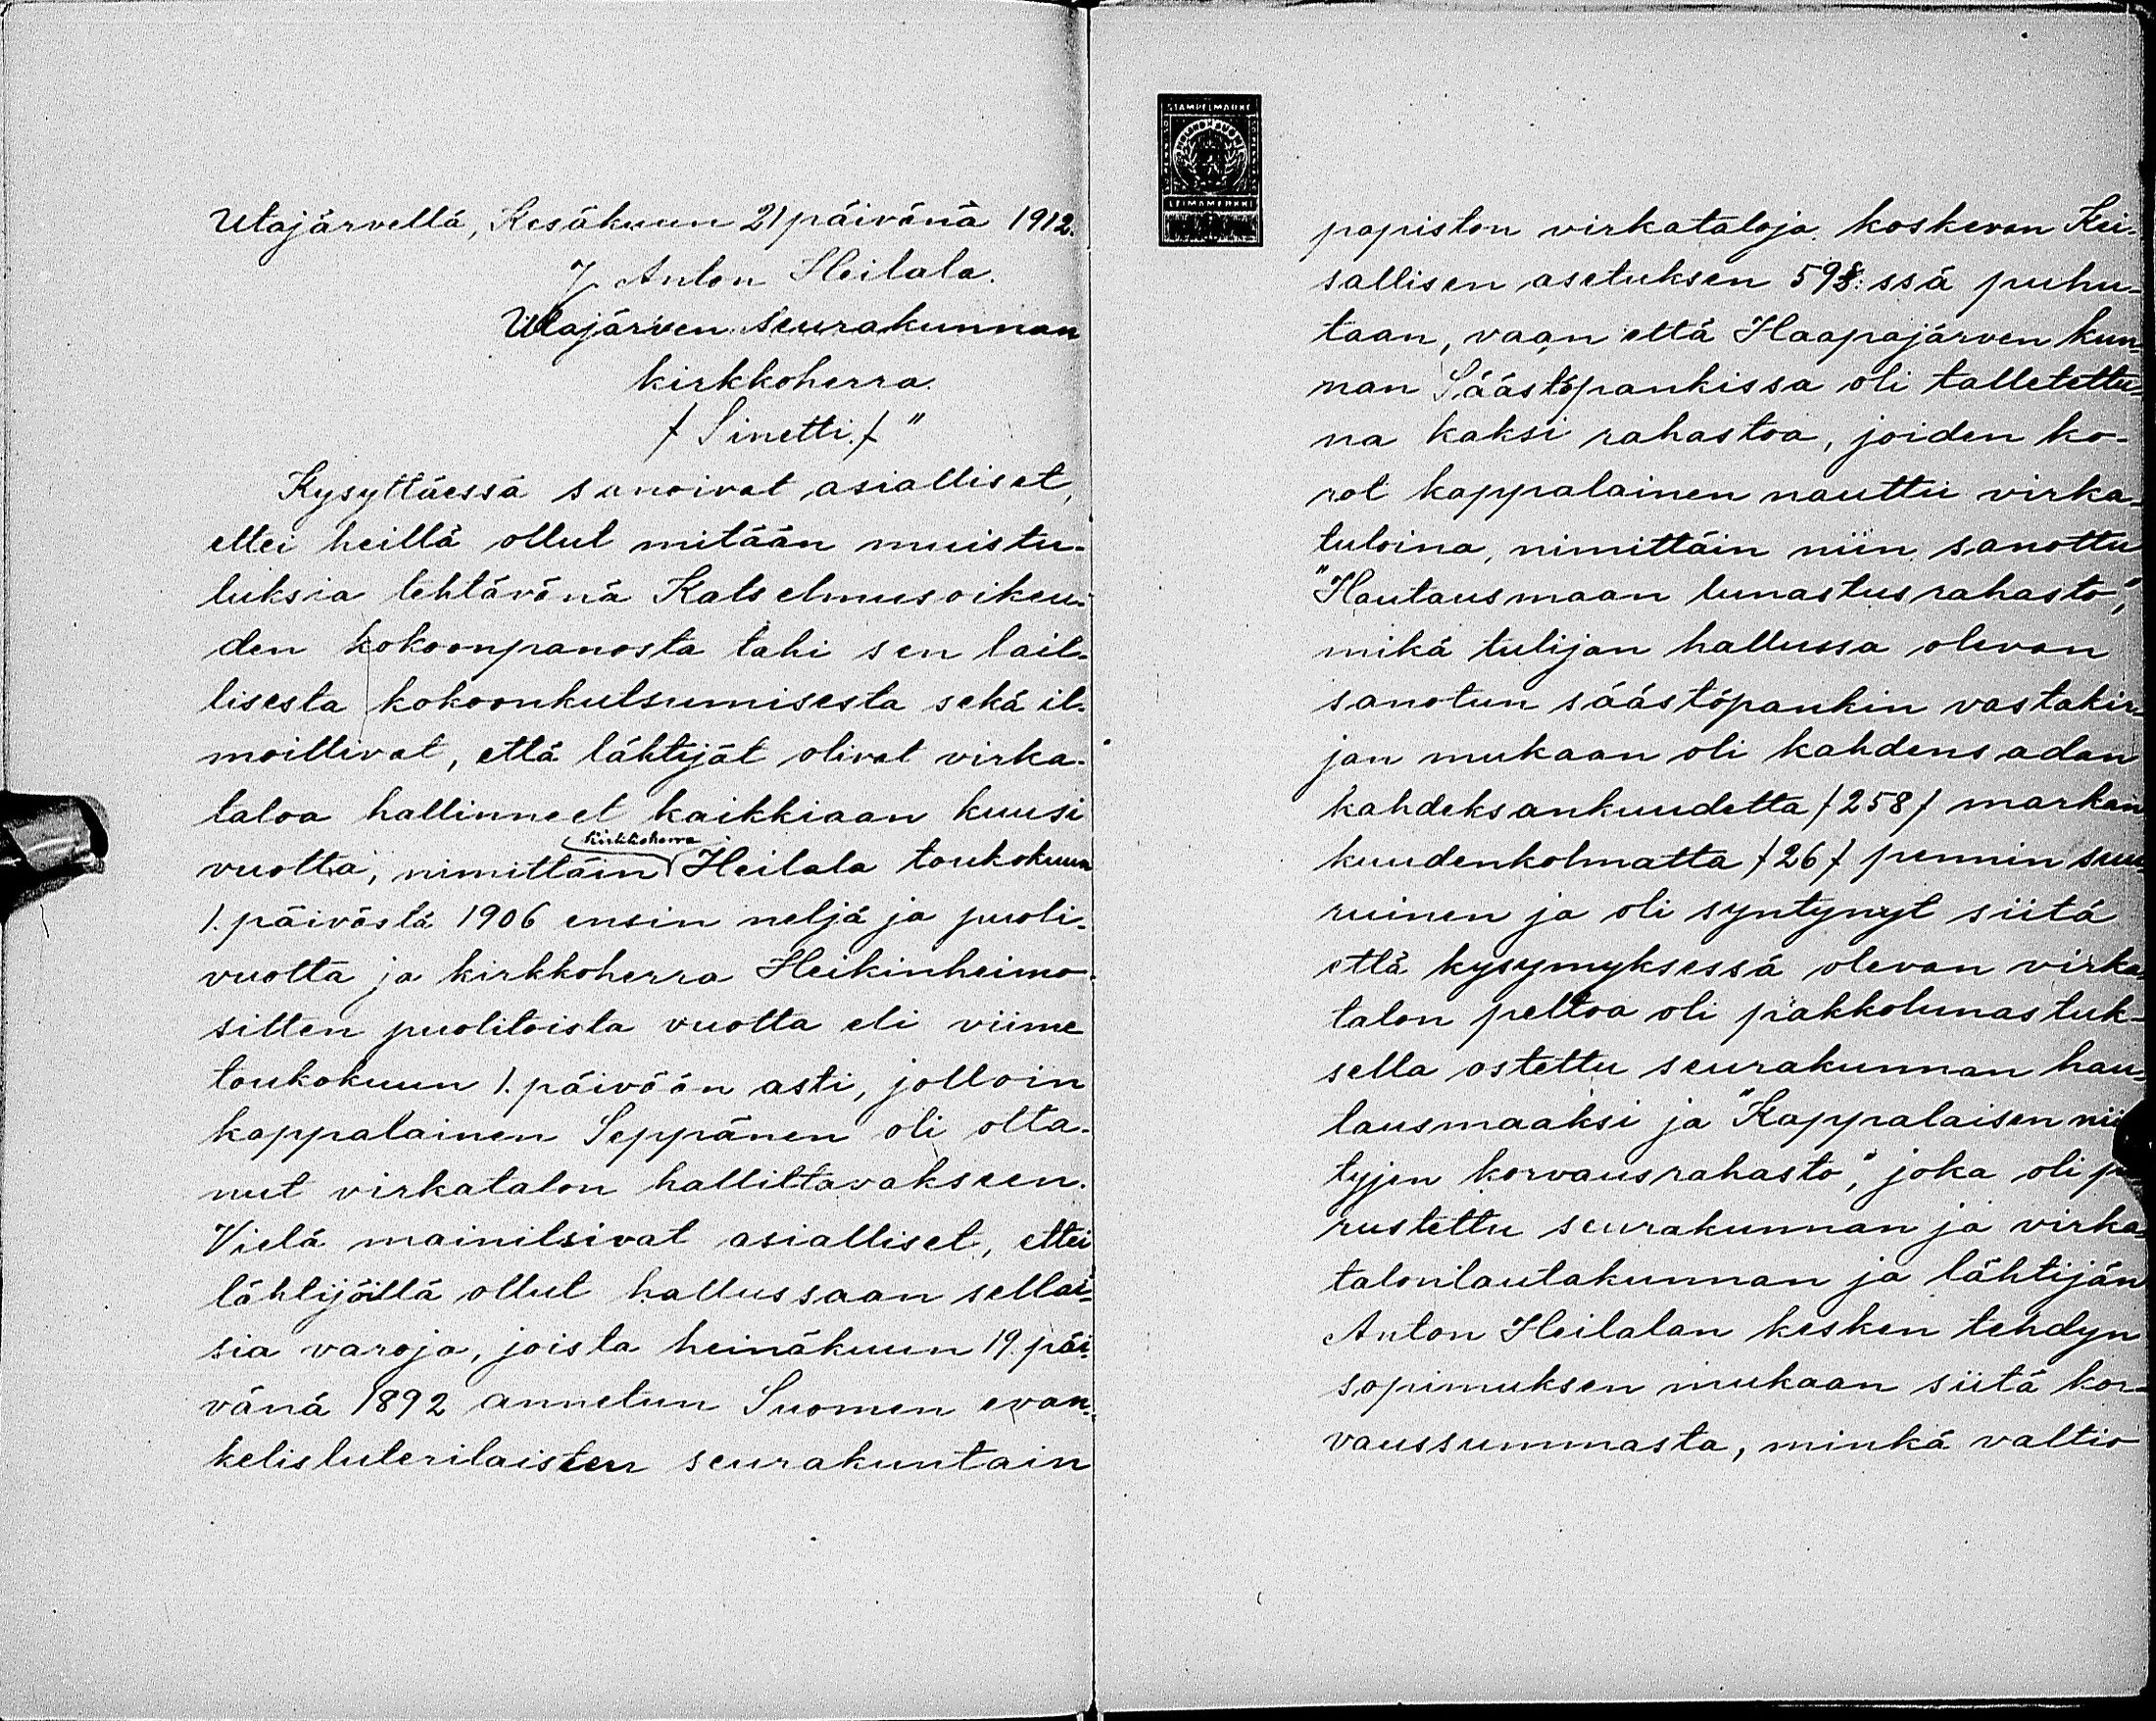 Utajärvellä, Kesäkuun 21 päivänä 1912.
J. Anton Heilala.
Utajärven seurakunnan
kirkkoherra.
/Sinetti./"
Kysyttäessä sanoivat asialliset,
ettei heillä ollut mitään muistu-
tuksia tehtävänä Katselmusoikeu-
den kokoonpanosta tahi sen lail-
lisesta kokoonkutsumisesta sekä il-
moittivat, että lähtijät olivat virka-
taloa hallinneet kaikkiaan kuusi
vuotta, nimittäin kirkkoherra Heilala toukokuun
1. päivästä 1906 ensin neljä ja puoli-
vuotta ja kirkkoherra Heikinheimo
sitten puolitoista vuotta eli viime
toukokuun 1. päivään asti, jolloin
kappalainen Seppänen oli otta-
nut virkatalon hallittavakseen.
Vielä mainitsivat asialliset, ettei
lähtijöillä ollut hallussaan sellai-
sia varoja, joista heinäkuun 19. päi-
vänä 1892 annetun Suomen evan-
kelisluterilaisten seurakuntain
STÄMPELMÄRKE
LEIMAMERKKI
papiston virkataloja koskevan Kei-
sallisen asetuksen 59§:ssä puhu-
taan, vaan että Haapajärven kun-
nan Säästöpankissa oli talletettu-
na kaksi rahastoa, joiden ko-
rot kappalainen nauttii virka-
tuloina, nimittäin niin sanottu
"Hautausmaan lunastusrahasto",
mikä tulijan hallussa olevan
sanotun säästöpankin vastakir-
jan mukaan oli kahdensadan
kahdeksankuudetta /258/ markan
kuudenkolmatta /26/ pennin suu-
ruinen ja oli syntynyt siitä
että kysymyksessä olevan virka-
talon peltoa oli pakkolunastuk-
sella ostettu seurakunnan hau-
tausmaaksi ja "Kappalaisen nii
tyjen korvausrahasto", joka oli p
rustettu seurakunnan ja virka-
talonlautakunnan ja lähtijän
Anton Heilalan kesken tehdyn
sopimuksen mukaan siitä kor-
vaussummasta, minkä valtio